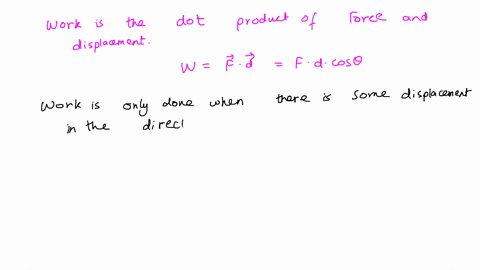 Work is the dot product of Force and
displacement.
W = F⃗ · d⃗ = F · d · cosθ
Work is only done when there is some displacement
in the direc